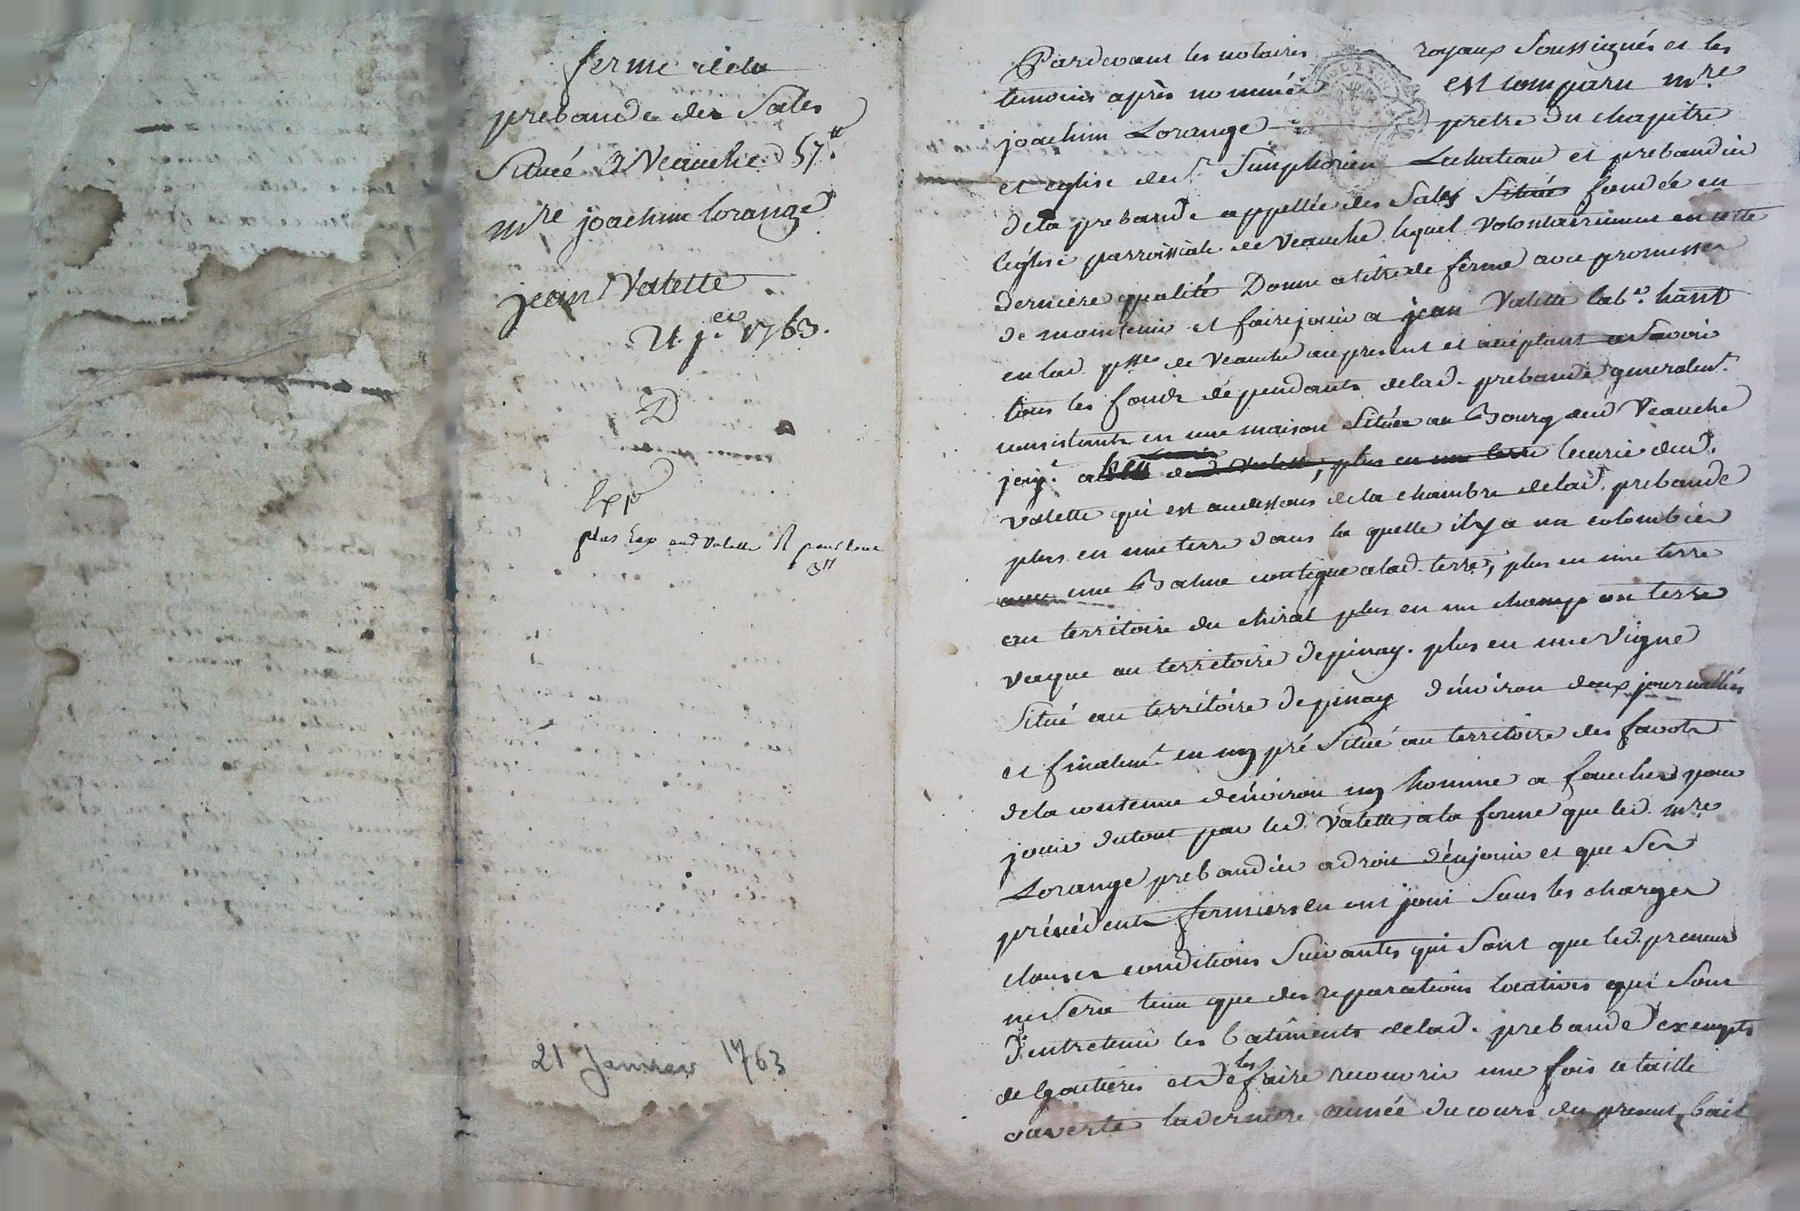 ferme dela
prebande des Sales
Située a Veauche 57#
mre joachim lorange
jean Valette
21 j.er 1763.
D
Exp
plus Exp aud Valette
3#
21 Janvier 1763
Pardevant les notaires royaux Soussignés et les
temoins après nommés est comparu mre
joachim Lorange pretre du chapitre
et eglise de St Simphorien Lechateau et prebandier
dela prebande appellée des Sales Située fondée en
l'église parroissiale de Veauche lequel Volontairement en cette
derniere qualité Donne a titre de ferme avec promesse
de maintenir et faire jouir a jean Valette lab.r hant
en lad psse de Veauche au present et aceptant a Savoir
tous les fonds dépendants delad. prebande generalem.t
consistants en une maison Située au Bourg dud Veauche
joig.t a dud Valette, plus en une terre lecurie dud.
Valette qui est audessous dela chambre delad. prebande
plus en une terre dans la quelle il y a un colombier
avec une Balme contigue a lad. terre, plus en une terre
au territoire du chirat plus en un champ ou terre
vacque au territoire depinay. plus en une Vigne
Situé au territoire depinay d'environ deux journallées
et finalem.t en un pré Situé au territoire des favots
dela contenue d'environ un homme a faucher pour
jouir dutout par led. Valette a la forme que led. mre
Lorange prebandier a droit d'enjouir et que Ses
précédents fermiers en ont joui Sous les charges
clauses conditions Suivantes qui Sont que led. preneur
ne Sera tenu que des reparations locatives qui Sont
d'entretenir les batiments delad. prebande exempts
de goutieres et de les faire recouvrir une fois a taille
ouverte la derniere année du cours du present bail